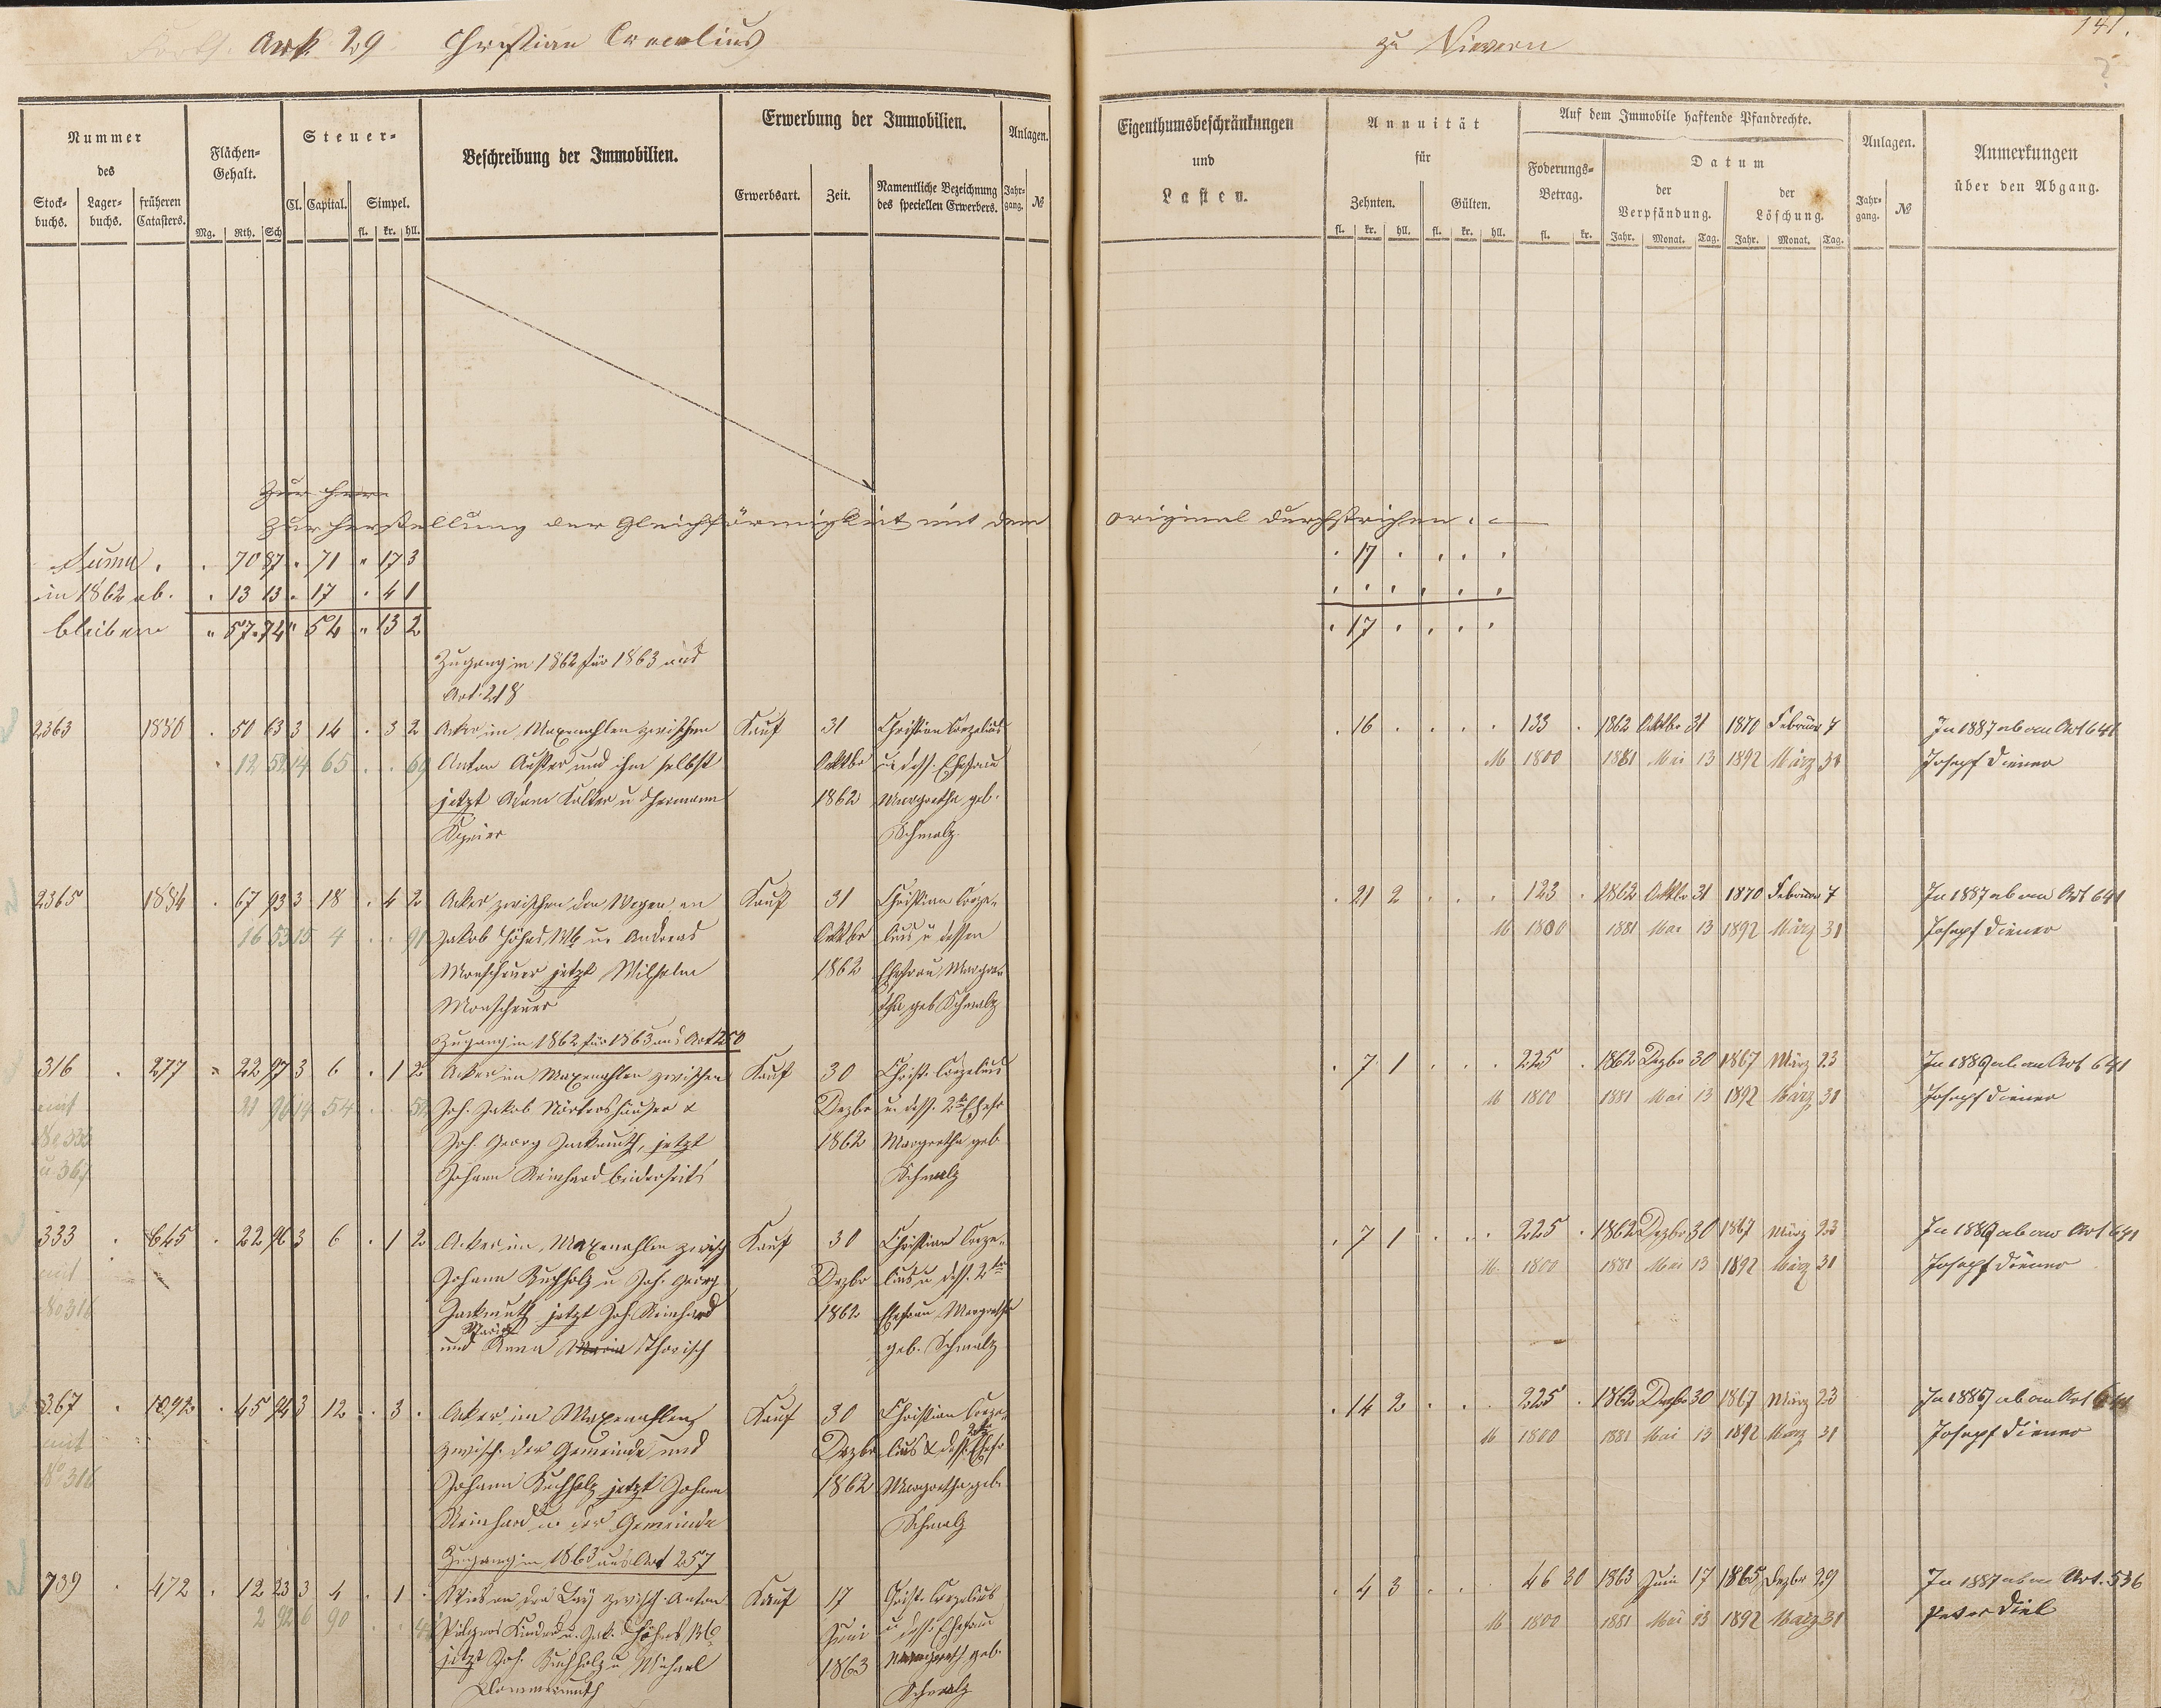 Forts. Art. 29. Christian Corcelius
zu Nievern
141.
Nummer
des
Stock-
buchs.
Lager-
buchs.
früheren
Catasters.
Flächen-
Gehalt.
Mg. Rth. Sch
Steuer-
Cl. Capital. Simpel.
fl. kr. hll.
Beschreibung der Immobilien.
Erwerbung der Immobilien.
Erwerbsart. Zeit.
Namentliche Bezeichnung
des speciellen Erwerbers.
Anlagen.
Jahr-
gang. №
Eigenthumsbeschränkungen
und
Lasten.
Annuität
für
Zehnten. Gülten.
fl. kr. hll. fl. kr. hll.
Auf dem Immobile haftende Pfandrechte.
Foderungs-
Betrag.
fl. kr.
Datum
der
Verpfändung.
der
Löschung.
Jahr. Monat. Tag. Jahr. Monat. Tag.
Anlagen.
Jahr-
gang. №
Anmerkungen
über den Abgang.
Zur Herstellung der Gleichförmigkeit mit dem original durchstrichen.
Suma. 70 87 71 17 3 17
in 1862 ab. 13 13 17 4 1
bleiben 57 74 54 13 2 17
Zugang in 1862 für 1863 aus
Art. 218
2363 1850 50 63 3 14 3 2 Acker im Maxenahlen zwischen Kauf 31 Christian Corzelius 16 133 1862 Oktbr 31 1870 Februar 7 In 1887 ab an Art 641
12 52 14 65 Anton und ihm selbst Oktbr u. dess. Ehefrau M 1800 1881 Mai 13 1892 März 31 Josepf Diener
jetzt Adam u Hermann 1862 Margretha geb.
Schmalz.
2365 1854 67 93 3 18 4 2 Acker zwischen den Wegen, an Kauf 31 Christian Corze- 21 2 123 1862 Oktbr 31 1870 Februar 7 In 1887 ab an Art 641
16 53 15 4 91 Jakob Höhns Wb u. Andreas Oktbr lius u dessen M 1800 1881 Mai 13 1892 März 31 Josepf Diener
Monscheuer jetzt Wilhelm 1862 Ehefrau Margre-
Monscheuer tha geb Schmalz
Zugang in 1862 für 1863 aus Art 250
316 277 22 97 3 6 1 2 Acker im Maxenahlen zwischen Kauf 30 Christ. Corzelius 7 1 225 1862 Dezbr 30 1867 März 23 In 1886 ab an Art 641
mit 14 54 Joh. Jakob & Dezbr u. dess. 2te Ehefr M 1800 1881 Mai 13 1892 März 31 Josepf Diener
No 333 Joh. Georg Zerkmuth, jetzt 1862 Margretha geb
u 367 Johann Reinhard beiderseits Schmalz
333 645 22 96 3 6 1 2 Acker im Maxenahlen zwisch Kauf 30 Christian Corze- 7 1 225 1862 Dezbr 30 1867 März 23 In 1886 ab an Art 641
mit Johann Buchholz u Joh. Georg Dezbr lius u dess. 2te M. 1800 1881 Mai 13 1892 März 31 Josepf Diener
No 316 Zerkmuth jetzt Joh Reinhard 1862 Ehefrau Margretha
und Anna Maria geb. Schmalz
367 1092 45 94 3 12 3 Acker im Maxenahlen Kauf 30 Christian Corze- 14 2 225 1862 Dezbr 30 1867 März 23 In 1886 ab an Art 641
mit zwisch. der Gemeinde und Dezbr lius & dess. 2te Ehefr M 1800 1881 Mai 13 1892 März 31 Josepf Diener
No 316 Johann Buchholz jetzt Johann 1862 Margretha geb.
Reinhard u der Gemeinde Schmalz
Zugang in 1863 aus Art 257
739 472 12 23 3 4 1 Wies an der Lay zwisch. Anton Kauf 17 Christ. Corzelius 4 3 46 30 1863 Juni 17 1865 Dezbr 29 In 1887 ab an Art. 536
2 92 6 90 Kinder u. Jak. Höhns Wb Juni u dess. Ehefrau M 1800 1881 Mai 13 1892 März 31 Peter Diel
jetzt Joh. Buchholz u Michael 1863 Margreth geb.
Schmalz